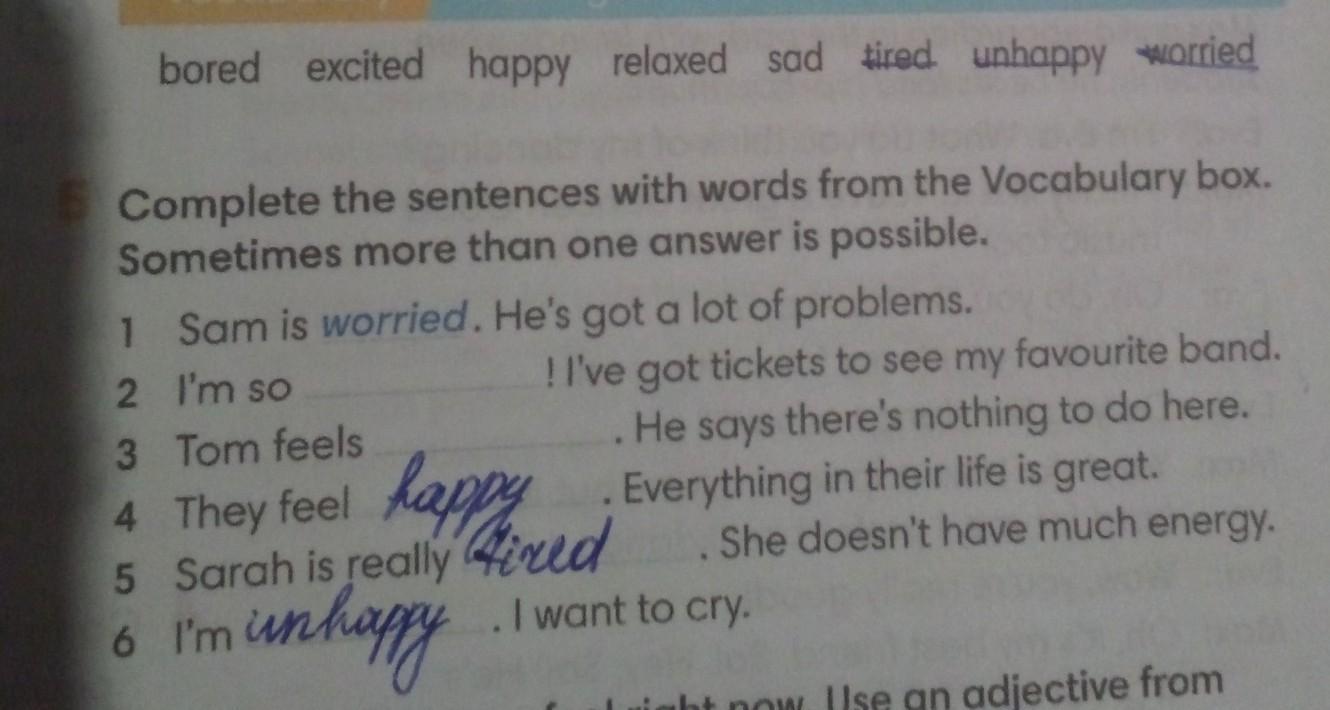 bored excited happy relaxed sad tired unhappy worried
Complete the sentences with words from the Vocabulary box.
Sometimes more than one answer is possible.
1 Sam is worried. He's got a lot of problems.
2 I'm so ! I've got tickets to see my favourite band.
3 Tom feels . He says there's nothing to do here.
4 They feel happy . Everything in their life is great.
5 Sarah is really tired . She doesn't have much energy.
6 I'm unhappy . I want to cry.
right now. Use an adjective from